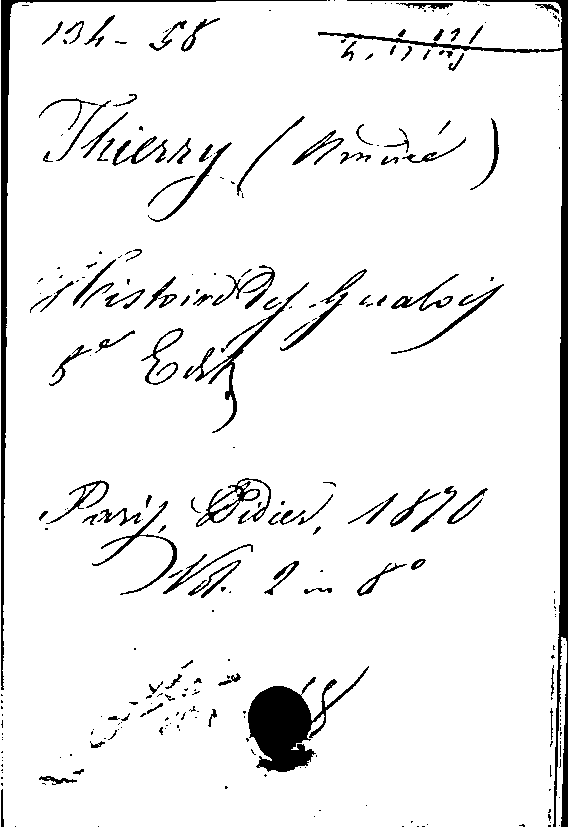 134-58
Thierry (Amédée)
Histoire des Gaulois
8e Edit
Paris, Didier, 1870
Vol. 2 in 8º